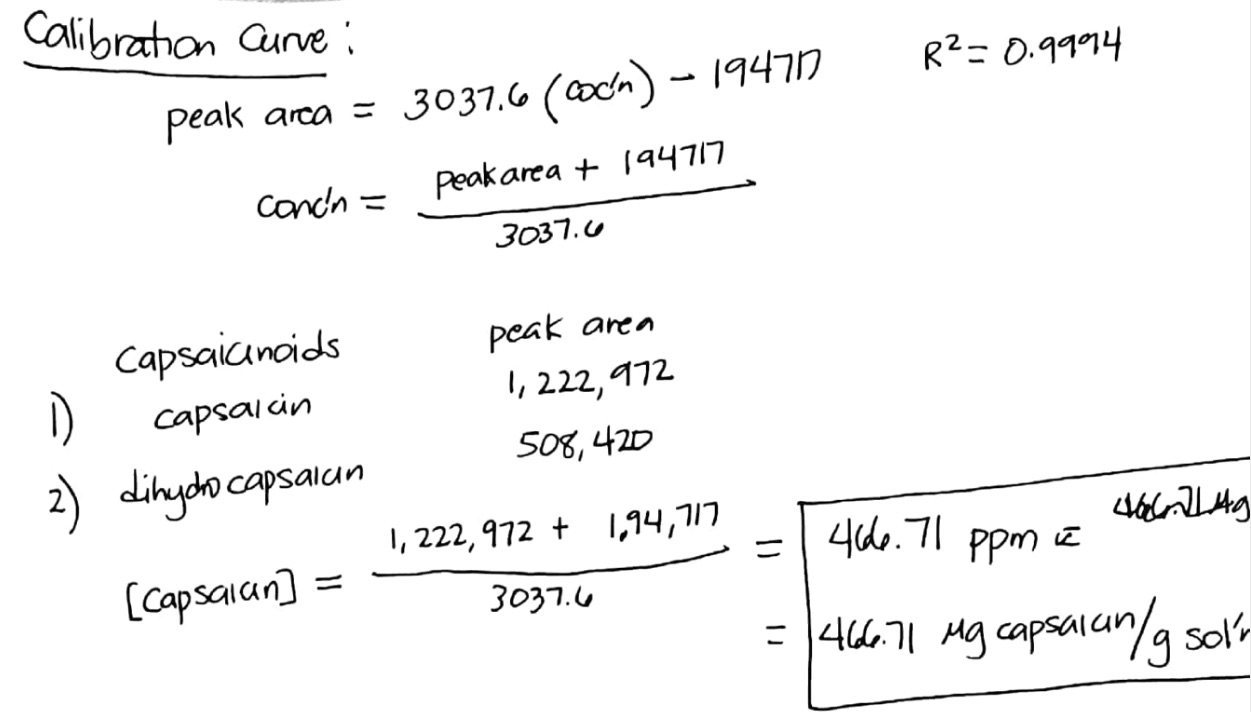 Calibration Curve:
peak area = 3037.6 (coc'n) - 194717 R² = 0.9994
conc'n = peak area + 194717
3037.6
Capsaicinoids peak area
1) capsaicin 1,222,972
2) dihydrocapsaicin 508,420
[Capsaicin] = 1,222,972 + 1,94,717 = 466.71 ppm
3037.6
= 466.71 µg capsaicin/g sol'n